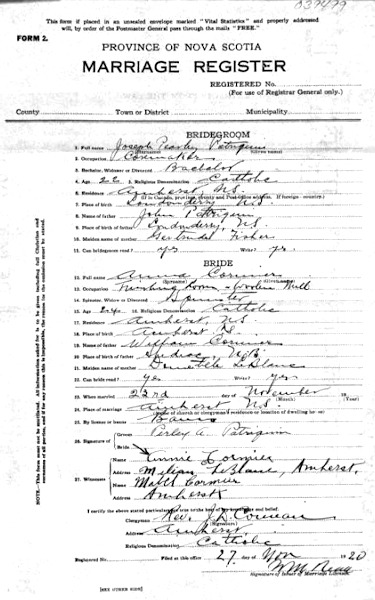 037479
This form if placed in an unsealed envelope marked "Vital Statistics" and properly addressed
will, by order of the Postmaster General pass through the mails "FREE."
FORM 2.
PROVINCE OF NOVA SCOTIA
MARRIAGE REGISTER
REGISTERED No.
(For use of Registrar General only.)
County Town or District Municipality
BRIDEGROOM
1. Full name Joseph Pearley Patriquin
(Surname) (Given name)
2. Occupation Coremaker
3. Bachelor, Widower or Divorced Bachelor
4. Age 26 5. Religious Denomination Catholic
6. Residence Amherst N.S.
(If in Canada, province, county and Post-office address. If foreign - country.)
7. Place of birth Londonderry N.S.
8. Name of father John Patriquin
9. Place of birth Londonderry, N.S.
10. Maiden name of mother Gertrude Fisher
11. Can bridegroom read? yes Write? yes
BRIDE
12. Full name Anna Cormier
(Surname) (Given name)
13. Occupation Finishing Room - Woolen Mill
14. Spinster, Widow or Divorced Spinster
15. Age 24 16. Religious Denomination Catholic
17. Residence Amherst, N.S.
18. Place of birth Amherst N.S.
19. Name of father William Cormier
20. Place of birth of father Shediac N.B.
21. Maiden name of mother LeBlanc
22. Can bride read? yes Write? yes
23. When married 23rd November
(Month) (Year)
24. Place of marriage Amherst N.S.
(Name of church or clergyman's residence or location of dwelling house)
25. By license or banns Banns
26. Signature of Groom Perley A. Patriquin
Bride Annie Cormier
27. Witnesses Name
Address LeBlanc, Amherst,
Name Cormier
Address Amherst
I certify the above stated particulars are true to the best of my knowledge and belief.
Clergyman Rev. J.H. Cormeau
(Signature)
Address Amherst
Religious Denomination Catholic
Registered No. Filed at this office 27 Nov 1920
Signature of Issuer of Marriage Licenses.
[SEE OTHER SIDE]
NOTE. This form must not be mutilated. All information asked for is to be given